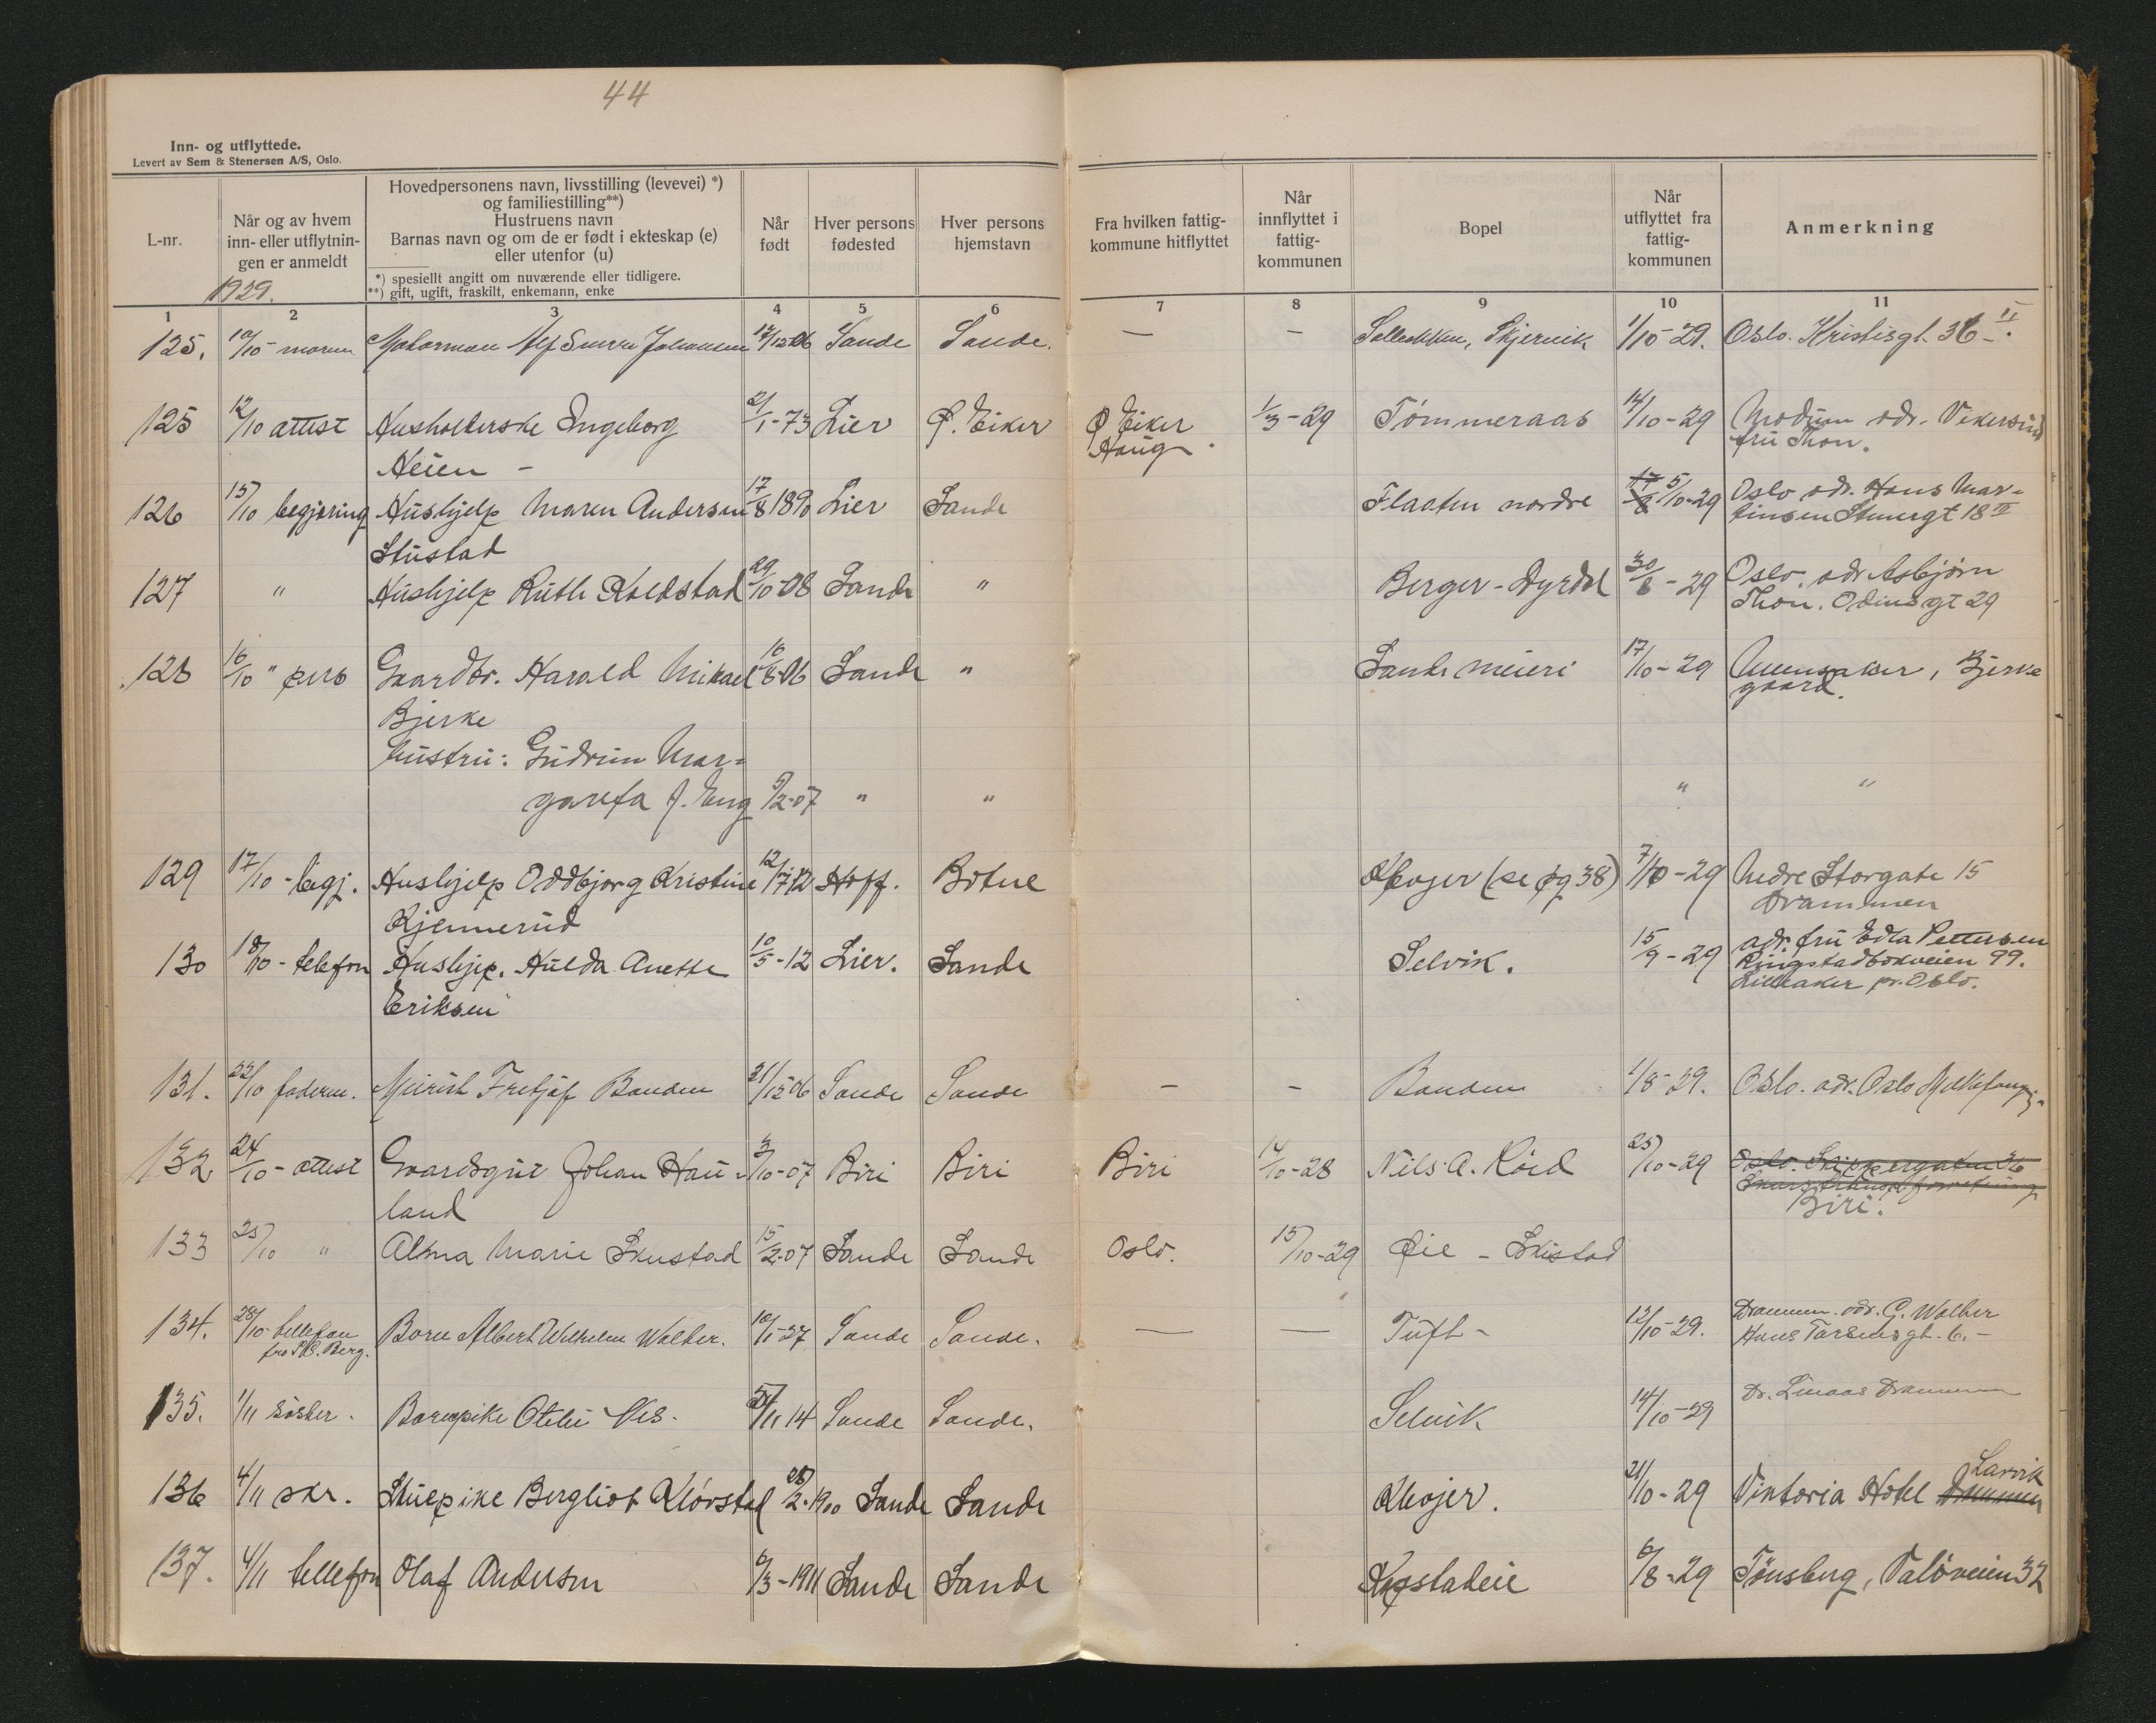 44
Inn- og utflyttede.
Levert av Sem & Stenersen A/S, Oslo.
L-nr.
Når og av hvem
inn- eller utflytnin-
gen er anmeldt
1929.
Hovedpersonens navn, livsstilling (levevei) *)
og familiestilling**)
Hustruens navn
Barnas navn og om de er født i ekteskap (e)
eller utenfor (u)
*) spesiellt angitt om nuværende eller tidligere.
**) gift, ugift, fraskilt, enkemann, enke
Når
født
Hver persons
fødested
Hver persons
hjemstavn
Fra hvilken fattig-
kommune hitflyttet
Når
innflyttet i
fattig-
kommunen
Bopel
Når
utflyttet fra
fattig-
kommunen
Anmerkning
1 2 3 4 5 6 7 8 9 10 11
125. 10/10 moren Alf Johansen 17/12 06 Sande Sande. — — Skjervik 1/10-29. Oslo. Kristisgt. 36 II.
125 12/10 attest Husholderske Ingeborg 21/1-73 Lier Ø. Eiker Ø Eiker 1/3-29 Tömmeraas 14/10-29 Modum adr. Vikersund
Heien - Haug. fru Thon.
126 15/10 begjæring Hushjelp Maren Andersen 17/8 1890 Lier Sande Flaaten nordre 5/10-29 Oslo adr. Hans Mar-
Stustad tinsen 18 II
127 " Hushjelp Ruth Koldstad 29/10-08 Sande " Berger - Dyrdal 30/8-29 Oslo, adr Asbjörn
Thon. Odinsgt 29
128 16/10 " pers Gaardbr. Harald Mikael 16/8-06 Sande " Sande meieri 17/10-29 Bjerke
Bjerke gaard.
hustru: Gudrun Mar-
gareta J. Eng 9/2-07 " " " "
129 17/10 - begj. Hushjelp Oddbjorg Kristine 12/7-12 Hoff. Botne Klevjer (se pg 38) 7/10-29 Nedre Storgate 15
Kjennerud Drammen
130 18/10 - telefon Hushjep. Hulda Anette 10/5-12 Lier. Sande Selvik. 15/9-29 adr. fru Edla Pettersen
Eriksen Ringstadbekveien 99.
Lilleaker pr. Oslo.
131. 22/10 faderen. Meirist Fretjof Banden 31/12 06 Sande Sande - - Banden 1/8-29. Oslo. adr. Oslo
132 24/10 - attest Gaardsgut Johan Hau- 3/10-07 Biri Biri Biri 14/10-28 Nils A. Röed 25/10-29 Oslo. Skippergaten 36
land Biri.
133 25/10 " Alma Marie Skustad 15/2-07 Sande Sande Oslo. 15/10-29 Øie - Skistad
134. 28/10 - tellefon Barn Albert Wilhelm Walher. 10/1-27 Sande Sande. — — Tuft - 12/10-29. Drammen. adr. C. Walher
fra Berg. Hans gt. 6. -
135. 1/11 söster. Barnepike Otelie Nes. 5/11 14 Sande Sande. Selvik 14/10-29 Dr. Linaae Drammen
136 4/11 skr. Stuepike Bergliot Klövstad 28/2-1900 Sande Sande Klevjer. 21/10-29 Viktoria Hotel Drammen Larvik
137. 4/11 tellefon Olaf Andersen 6/3-1911 Sande Sande 6/8-29 Tönsberg, Valöveien 32